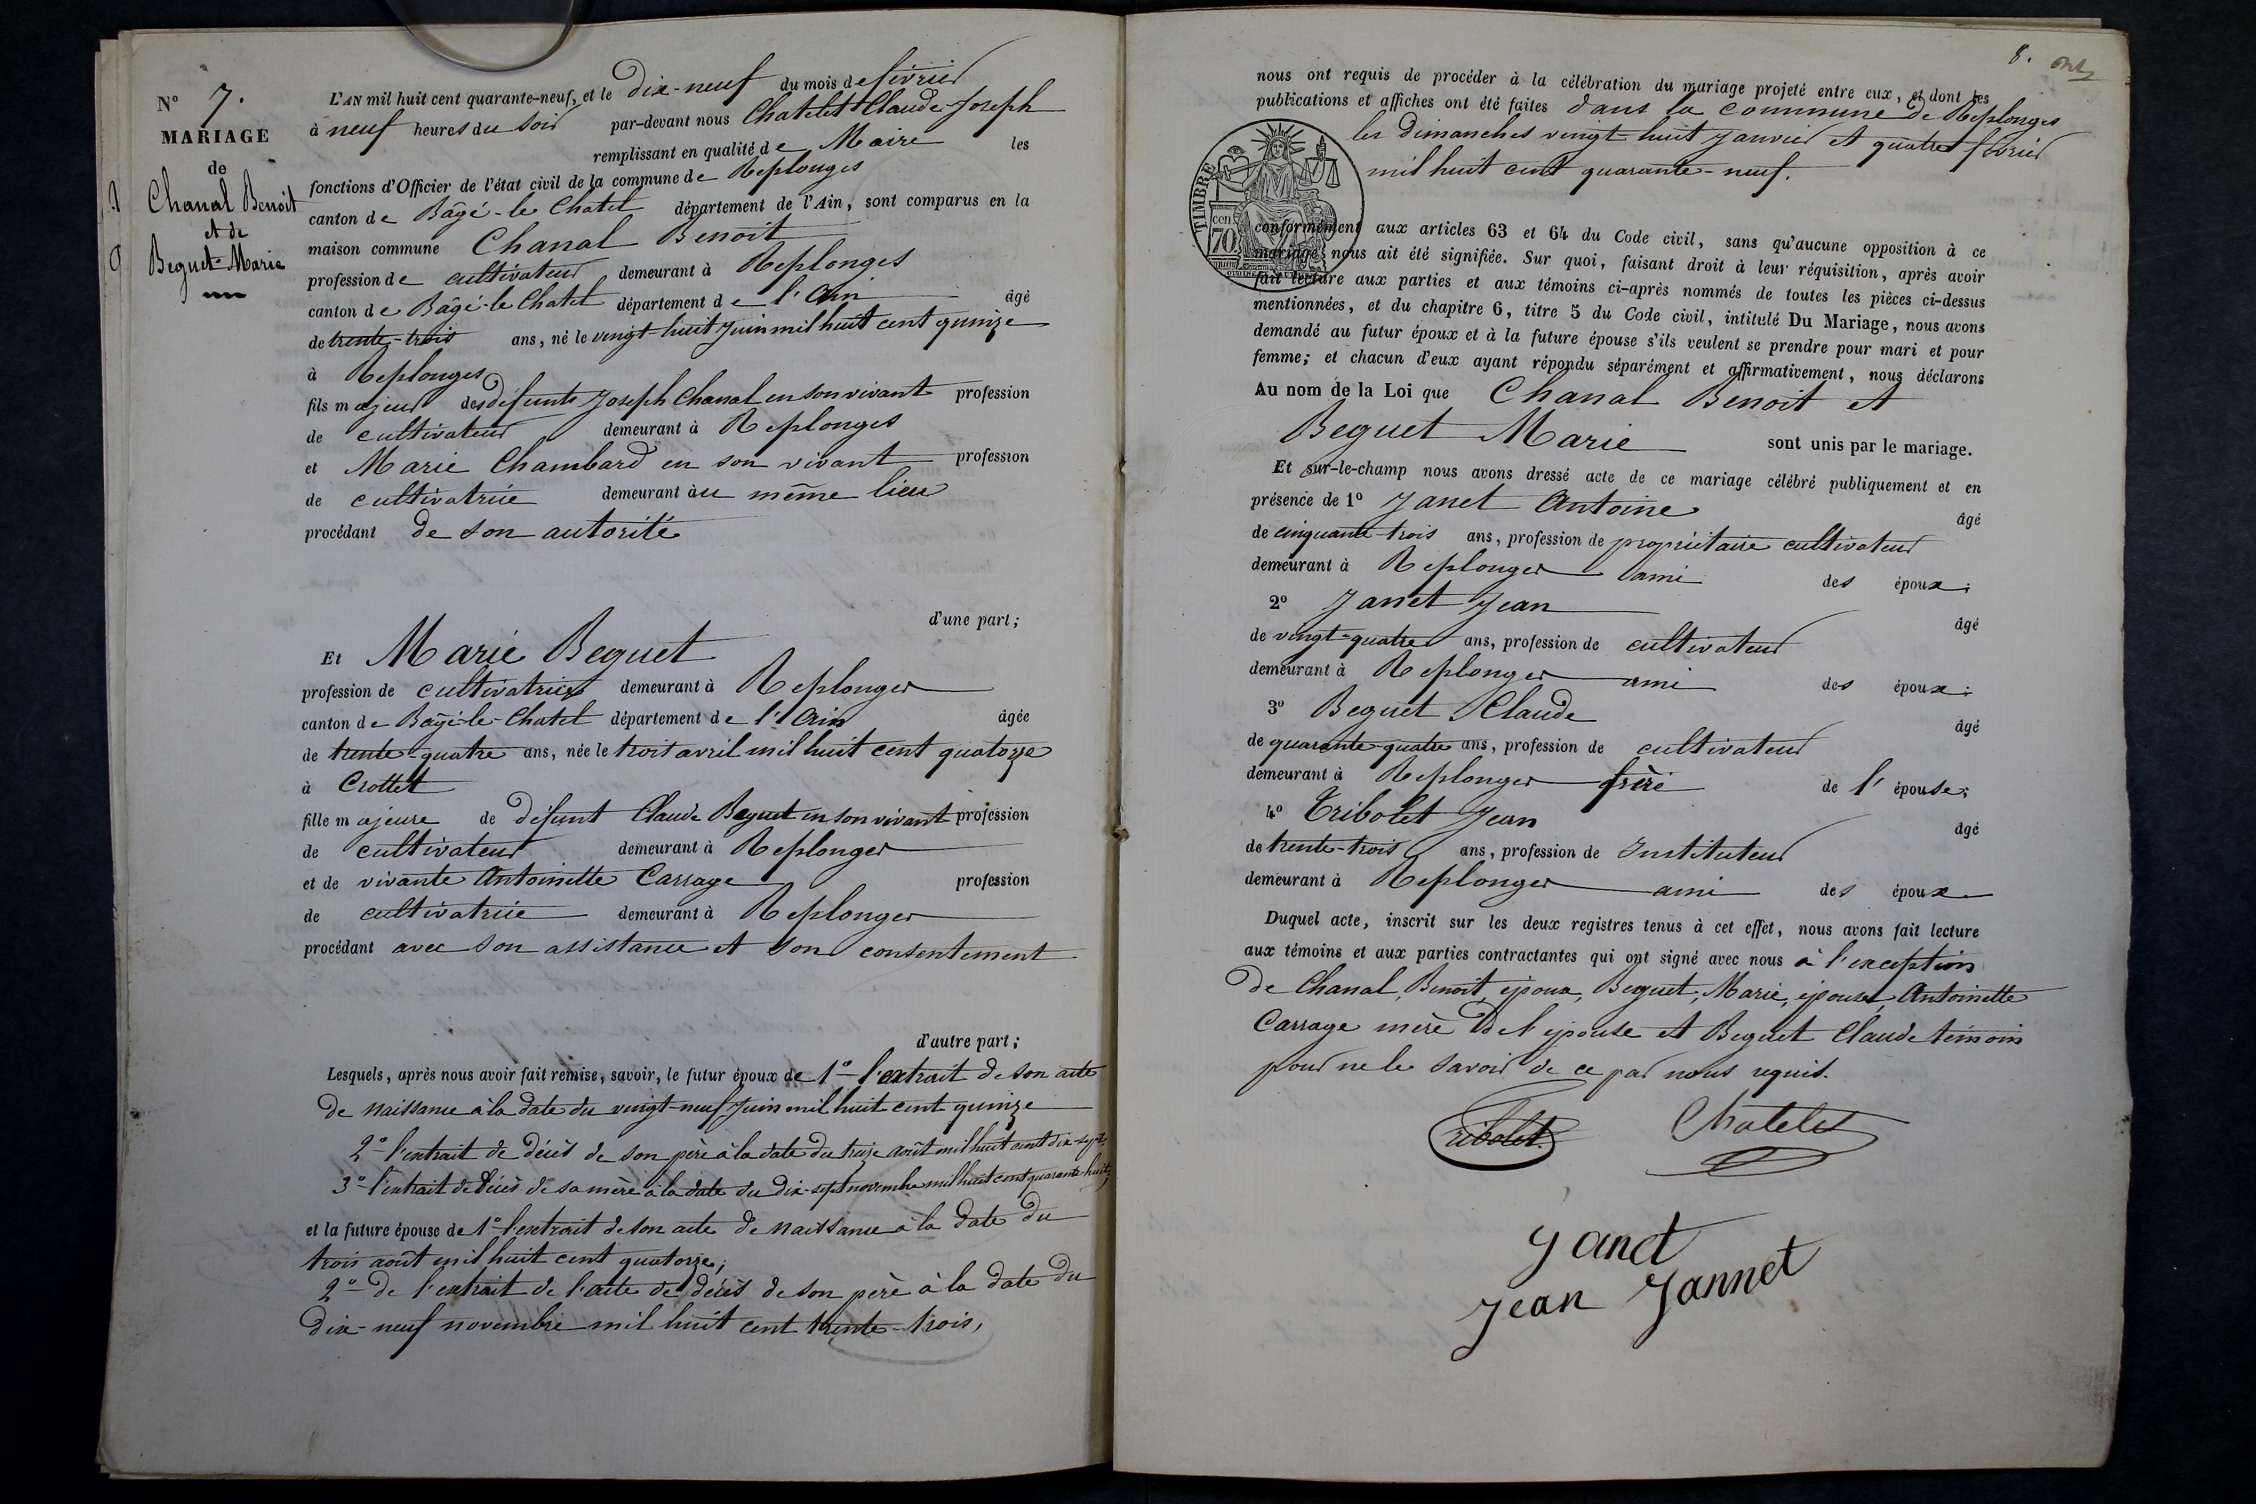 N° 7.
MARIAGE
de
Chanal Benoit
et de
Beguet Marie
L'AN mil huit cent quarante-neuf, et le dix-neuf du mois de février
à neuf heures du soir par-devant nous Chatelet Claude-Joseph
remplissant en qualité de Maire les
fonctions d'Officier de l'état civil de la commune de Replonges
canton de Bâgé-le-Chatel département de l'Ain, sont comparus en la
maison commune Chanal Benoit
profession de cultivateur demeurant à Replonges
canton de Bâgé-le-Chatel département de l'Ain âgé
de trente-trois ans, né le vingt-huit juin mil huit cent quinze
à Replonges
fils majeur des défunts Joseph Chanal en son vivant profession
de cultivateur demeurant à Replonges
et Marie Chambard en son vivant profession
de cultivatrice demeurant au même lieu
procédant de son autorité
d'une part;
Et Marie Beguet
profession de cultivatrice demeurant à Replonges
canton de Bâgé-le-Chatel département de l'Ain âgée
de trente-quatre ans, née le trois avril mil huit cent quatorze
à Crottet
fille majeure de défunt Claude Beguet en son vivant profession
de cultivateur demeurant à Replonges
et de vivante Antoinette Carrage profession
de cultivatrice demeurant à Replonges
procédant avec son assistance et son consentement
d'autre part;
Lesquels, après nous avoir fait remise, savoir, le futur époux de 1° l'extrait de son acte
de naissance à la date du vingt-neuf juin mil huit cent quinze
2° l'extrait de décès de son père à la date du treize août mil huit cent dix-sept
3° l'extrait de décès de sa mère à la date du dix-sept novembre mil huit cent quarante-huit;
et la future épouse de 1° l'extrait de son acte de naissance à la date du
trois août mil huit cent quatorze;
2° de l'extrait de l'acte de décès de son père à la date du
dix-neuf novembre mil huit cent trente-trois,
8.
nous ont requis de procéder à la célébration du mariage projeté entre eux, et dont les
publications et affiches ont été faites dans la commune de Replonges
les dimanches vingt-huit janvier et quatre février
mil huit cent quarante-neuf.
TIMBRE
cen
70
conformément aux articles 63 et 64 du Code civil, sans qu'aucune opposition à ce
mariage nous ait été signifiée. Sur quoi, faisant droit à leur réquisition, après avoir
fait lecture aux parties et aux témoins ci-après nommés de toutes les pièces ci-dessus
mentionnées, et du chapitre 6, titre 5 du Code civil, intitulé Du Mariage, nous avons
demandé au futur époux et à la future épouse s'ils veulent se prendre pour mari et pour
femme; et chacun d'eux ayant répondu séparément et affirmativement, nous déclarons
Au nom de la Loi que Chanal Benoit et
Beguet Marie sont unis par le mariage.
Et sur-le-champ nous avons dressé acte de ce mariage célébré publiquement et en
présence de 1° Janet Antoine âgé
de cinquante-trois ans, profession de propriétaire cultivateur
demeurant à Replonges ami des époux;
2° Janet Jean âgé
de vingt-quatre ans, profession de cultivateur
demeurant à Replonges ami des époux;
3° Beguet Claude âgé
de quarante-quatre ans, profession de cultivateur
demeurant à Replonges frère de l'épouse;
4° Tribolet Jean âgé
de trente-trois ans, profession de Instituteur
demeurant à Replonges ami des époux
Duquel acte, inscrit sur les deux registres tenus à cet effet, nous avons fait lecture
aux témoins et aux parties contractantes qui ont signé avec nous à l'exception
de Chanal, Benoit, époux, Beguet, Marie, épouse, Antoinette
Carrage mère de l'épouse et Beguet Claude témoin
pour ne le savoir de ce par nous requis.
Tribolet. Chatelet
Janet
Jean Jannet